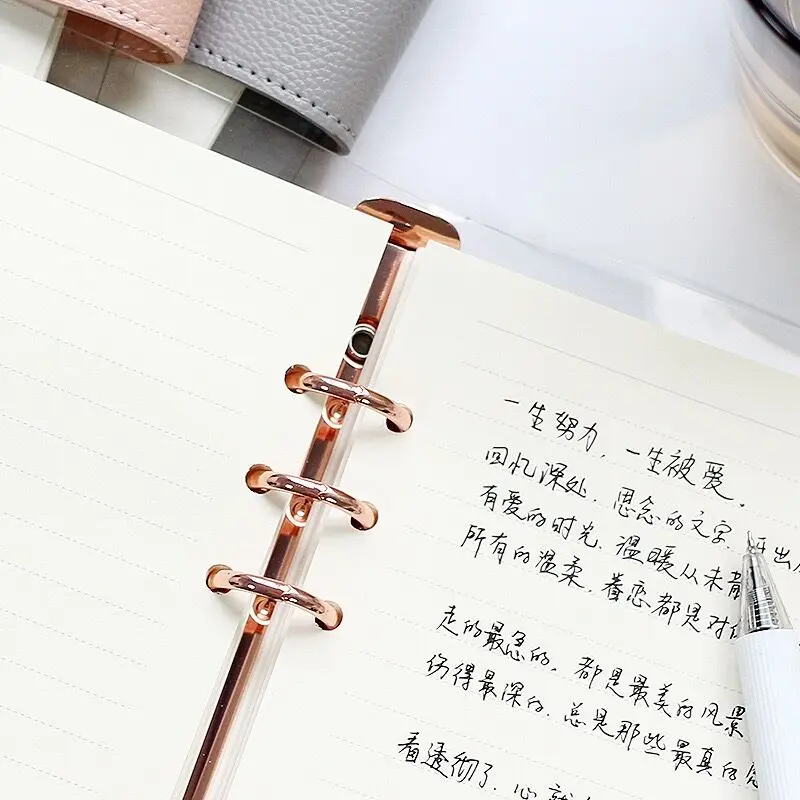 一生努力，一生被爱．
回忆深处．思念的文字 开出
有爱的时光．温暖从未
所有的温柔，眷恋都是对
走的最急的，都是最美的风景
伤得最深的．总是那些最真的
看透彻了．心就